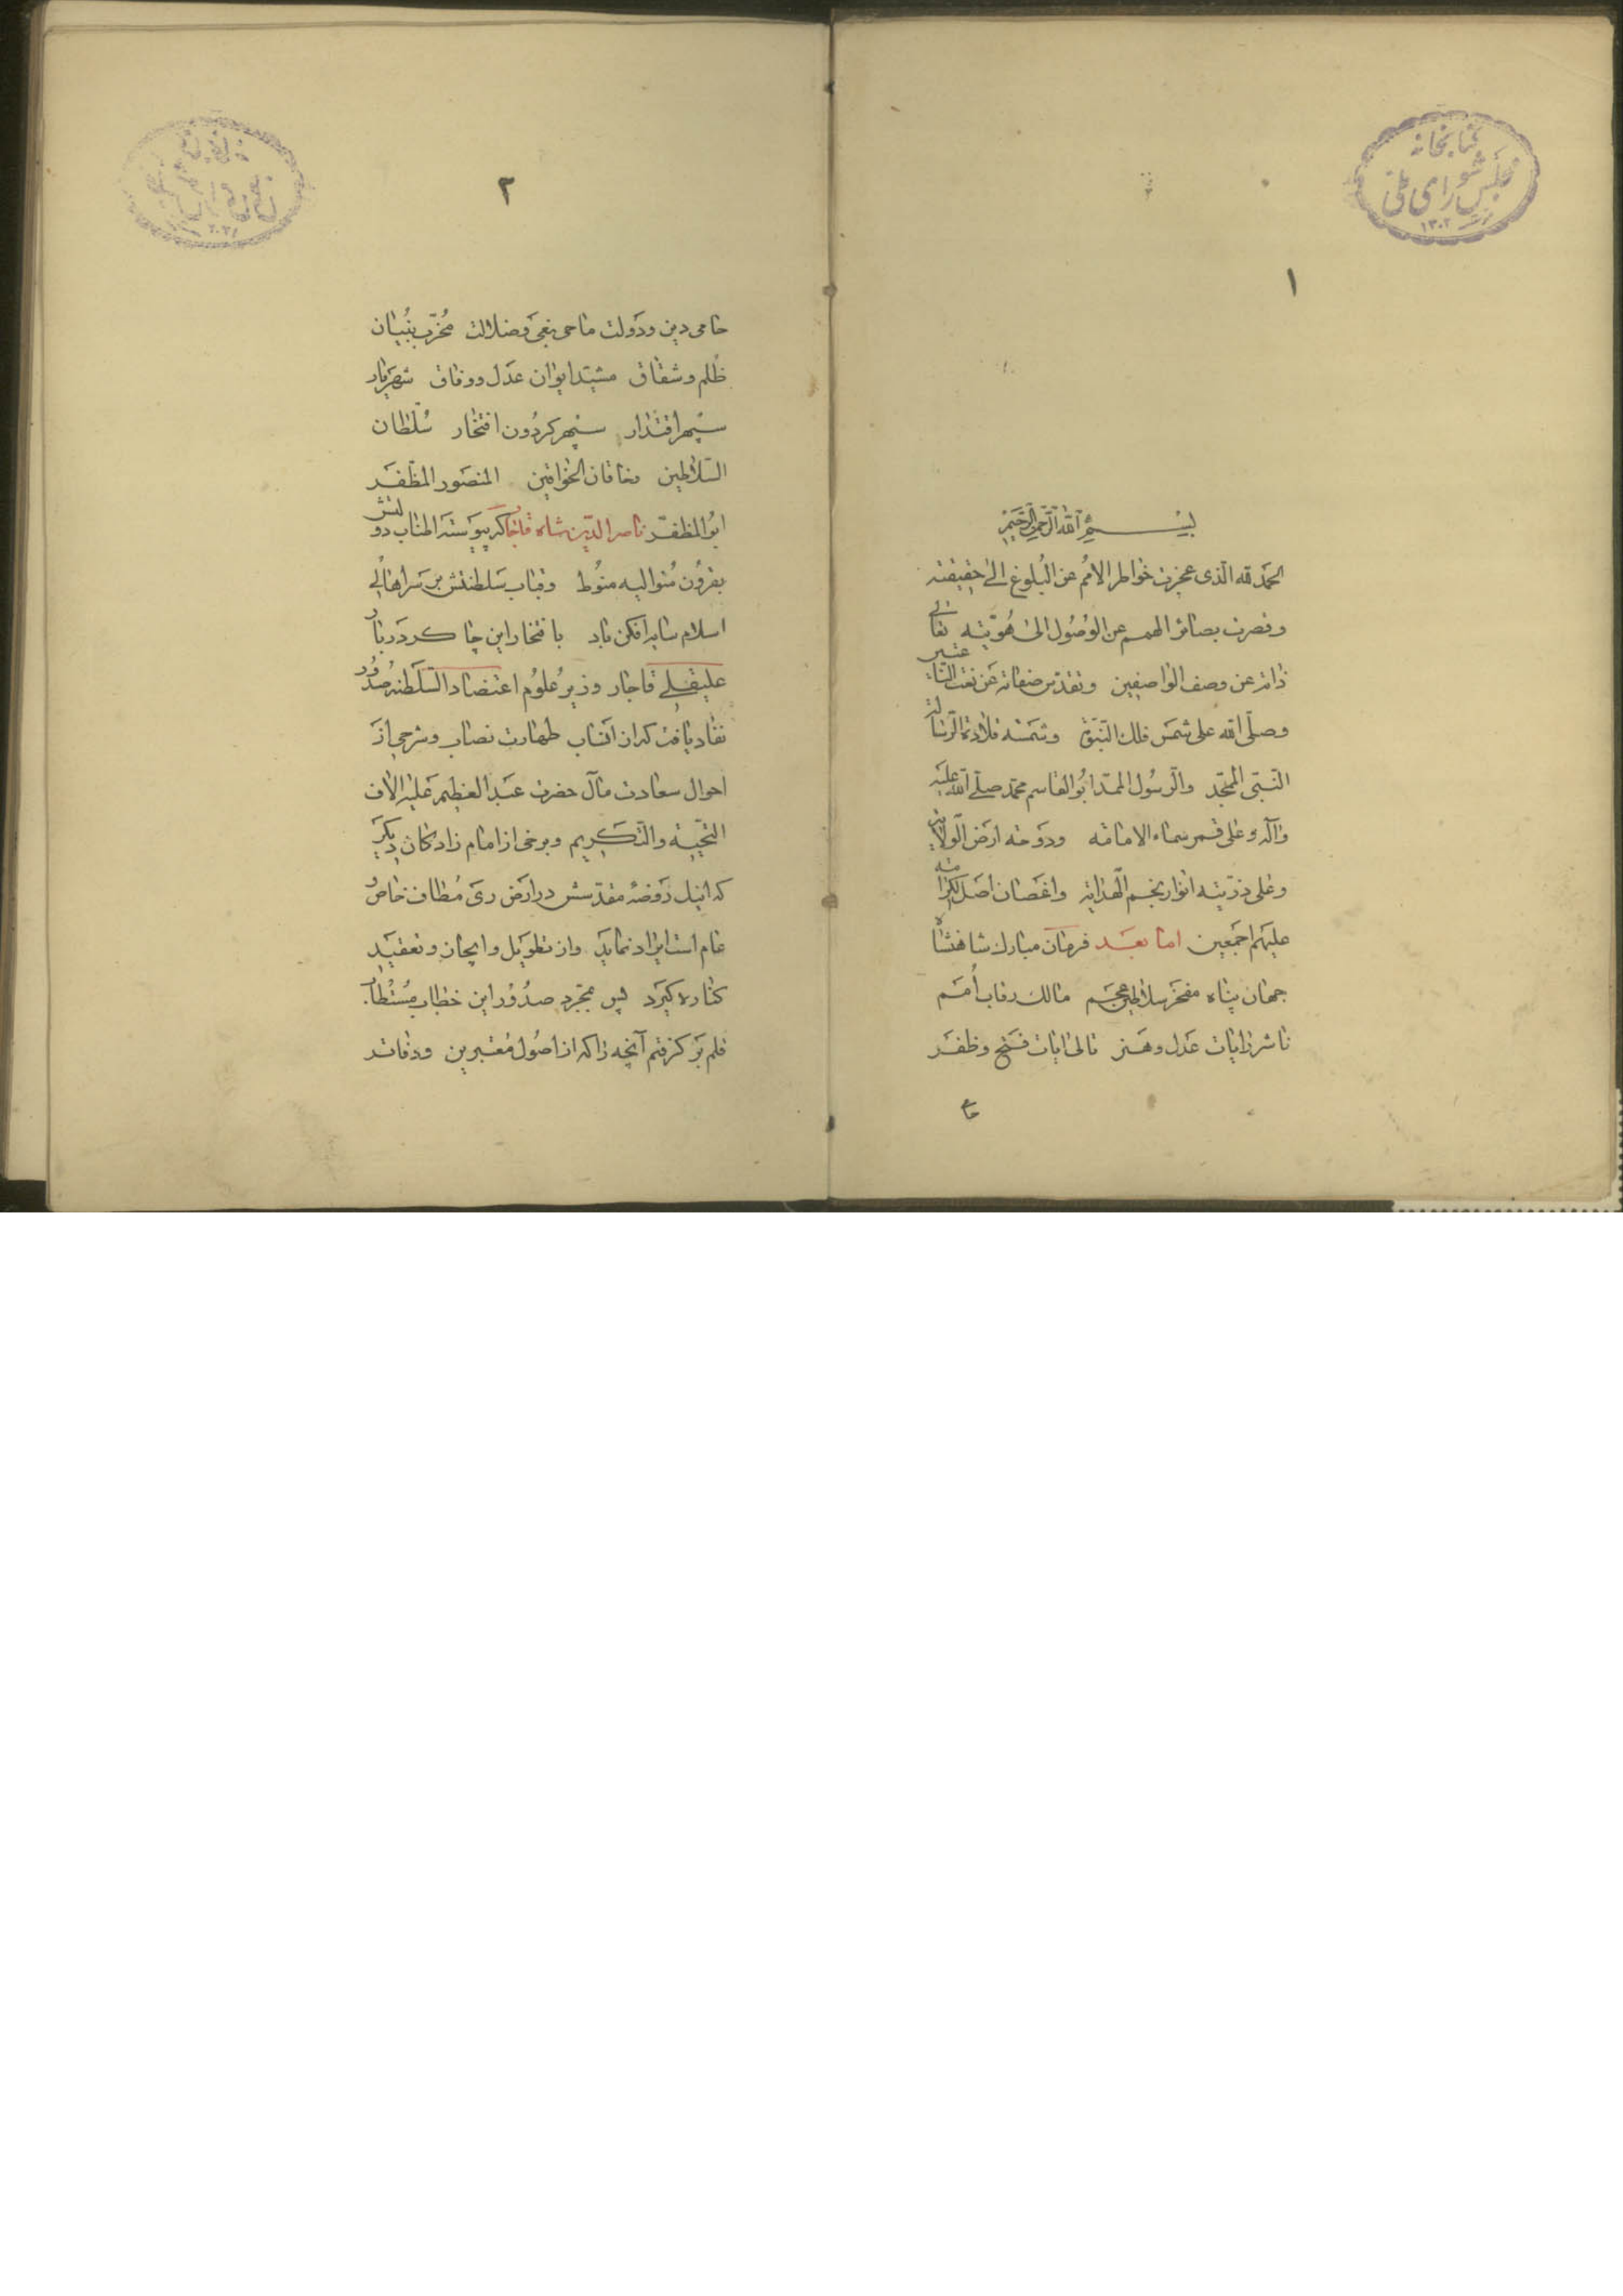 کتابخانه
مجلس شورای ملی
۱۳۰۲
۱
بسم الله الرحمن الرحیم
الحمد لله الذی عجزت خواطر الامم عن البلوغ الی حقیقته
و قصرت بصائر الهمم عن الوصول الی هویته تعالی
ذاته عن وصف الواصفین و تقدس صفاته عن نعت الناعتین
و صلی الله علی شمس فلک النبوة و شمسه قلادة الرسالة
النبی الممجد والرسول المسدد ابوالقاسم محمد صلی الله علیه
و آله و علی قمر سماء الامامة و دوحة ارض الولایة
و علی ذریته انوار نجم الهدایة و اغصان اصل الکرامة
علیهم اجمعین اما بعد فرمان مبارک شاهنشاه
جهان پناه مفخر سلاطین عجم مالک رقاب امم
ناشر رایات عدل و هنر تالی ایات فتح و ظفر
حامی
۲
حامی دین و دولت ماحی بغی و ضلالت مخرب بنیان
ظلم و شقاق مشید ایوان عدل و وفاق شهریار
سپهر اقتدار سپهر کردون افتخار سلطان
السلاطین و خاقان الخواقین المنصور المظفر
ابوالمظفر ناصرالدین شاه قاجار که پیوسته اطناب دولتش
بقرون متوالیه منوط و قباب سلطنتش بر سر اهالی
اسلام سایه افکن باد با فتخار این چاکر دربار
علیقلی قاجار وزیر علوم اعتضاد السلطنه صدور
نفاد یافت که از انساب طهارت نصاب و شرحی از
احوال سعادت مآل حضرت عبدالعظیم علیه الاف
التحیة والتکریم و برخی از امام زادکان دیکر
که انیک روضه مقدسش در ارض ری مطاف خاص و
عام است ایراد نماید و از تطویل و ایجاز و تعقید
کناره کیرد پس بمجرد صدور این خطاب مستطاب
قلم بر کرفتم آنچه را که از اصول معتبرین و دفاتر